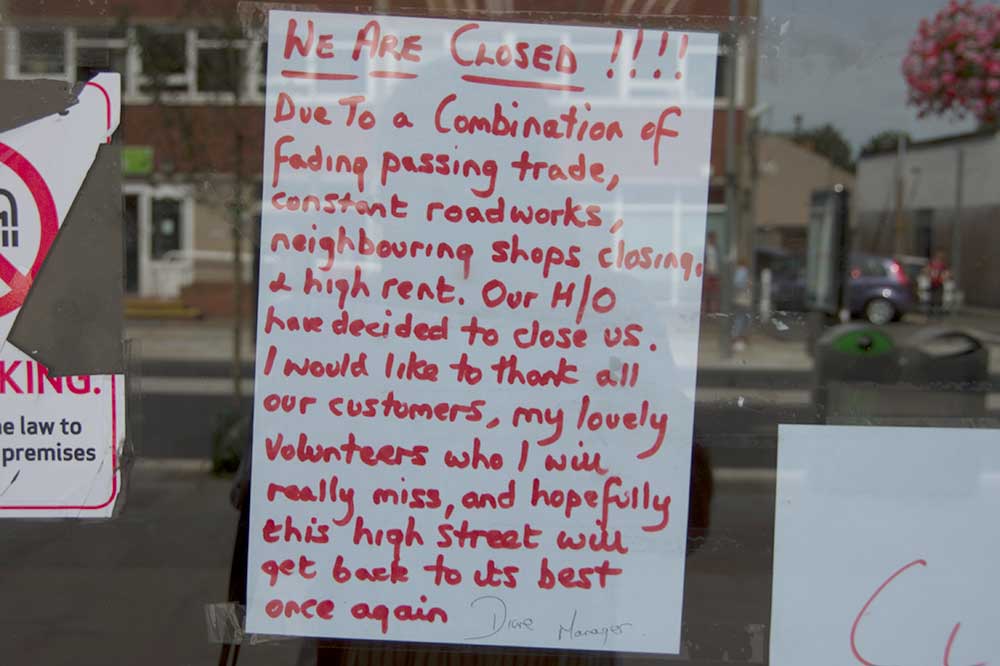 WE ARE CLOSED !!!!
Due To a Combination of
fading passing trade,
constant roadworks,
neighbouring shops closing,
& high rent. Our H/O
have decided to close us.
I would like to thank all
our customers, my lovely
volunteers who I will
really miss, and hopefully
this high street will
get back to its best
once again Diane Manager.
KING.
e law to
premises